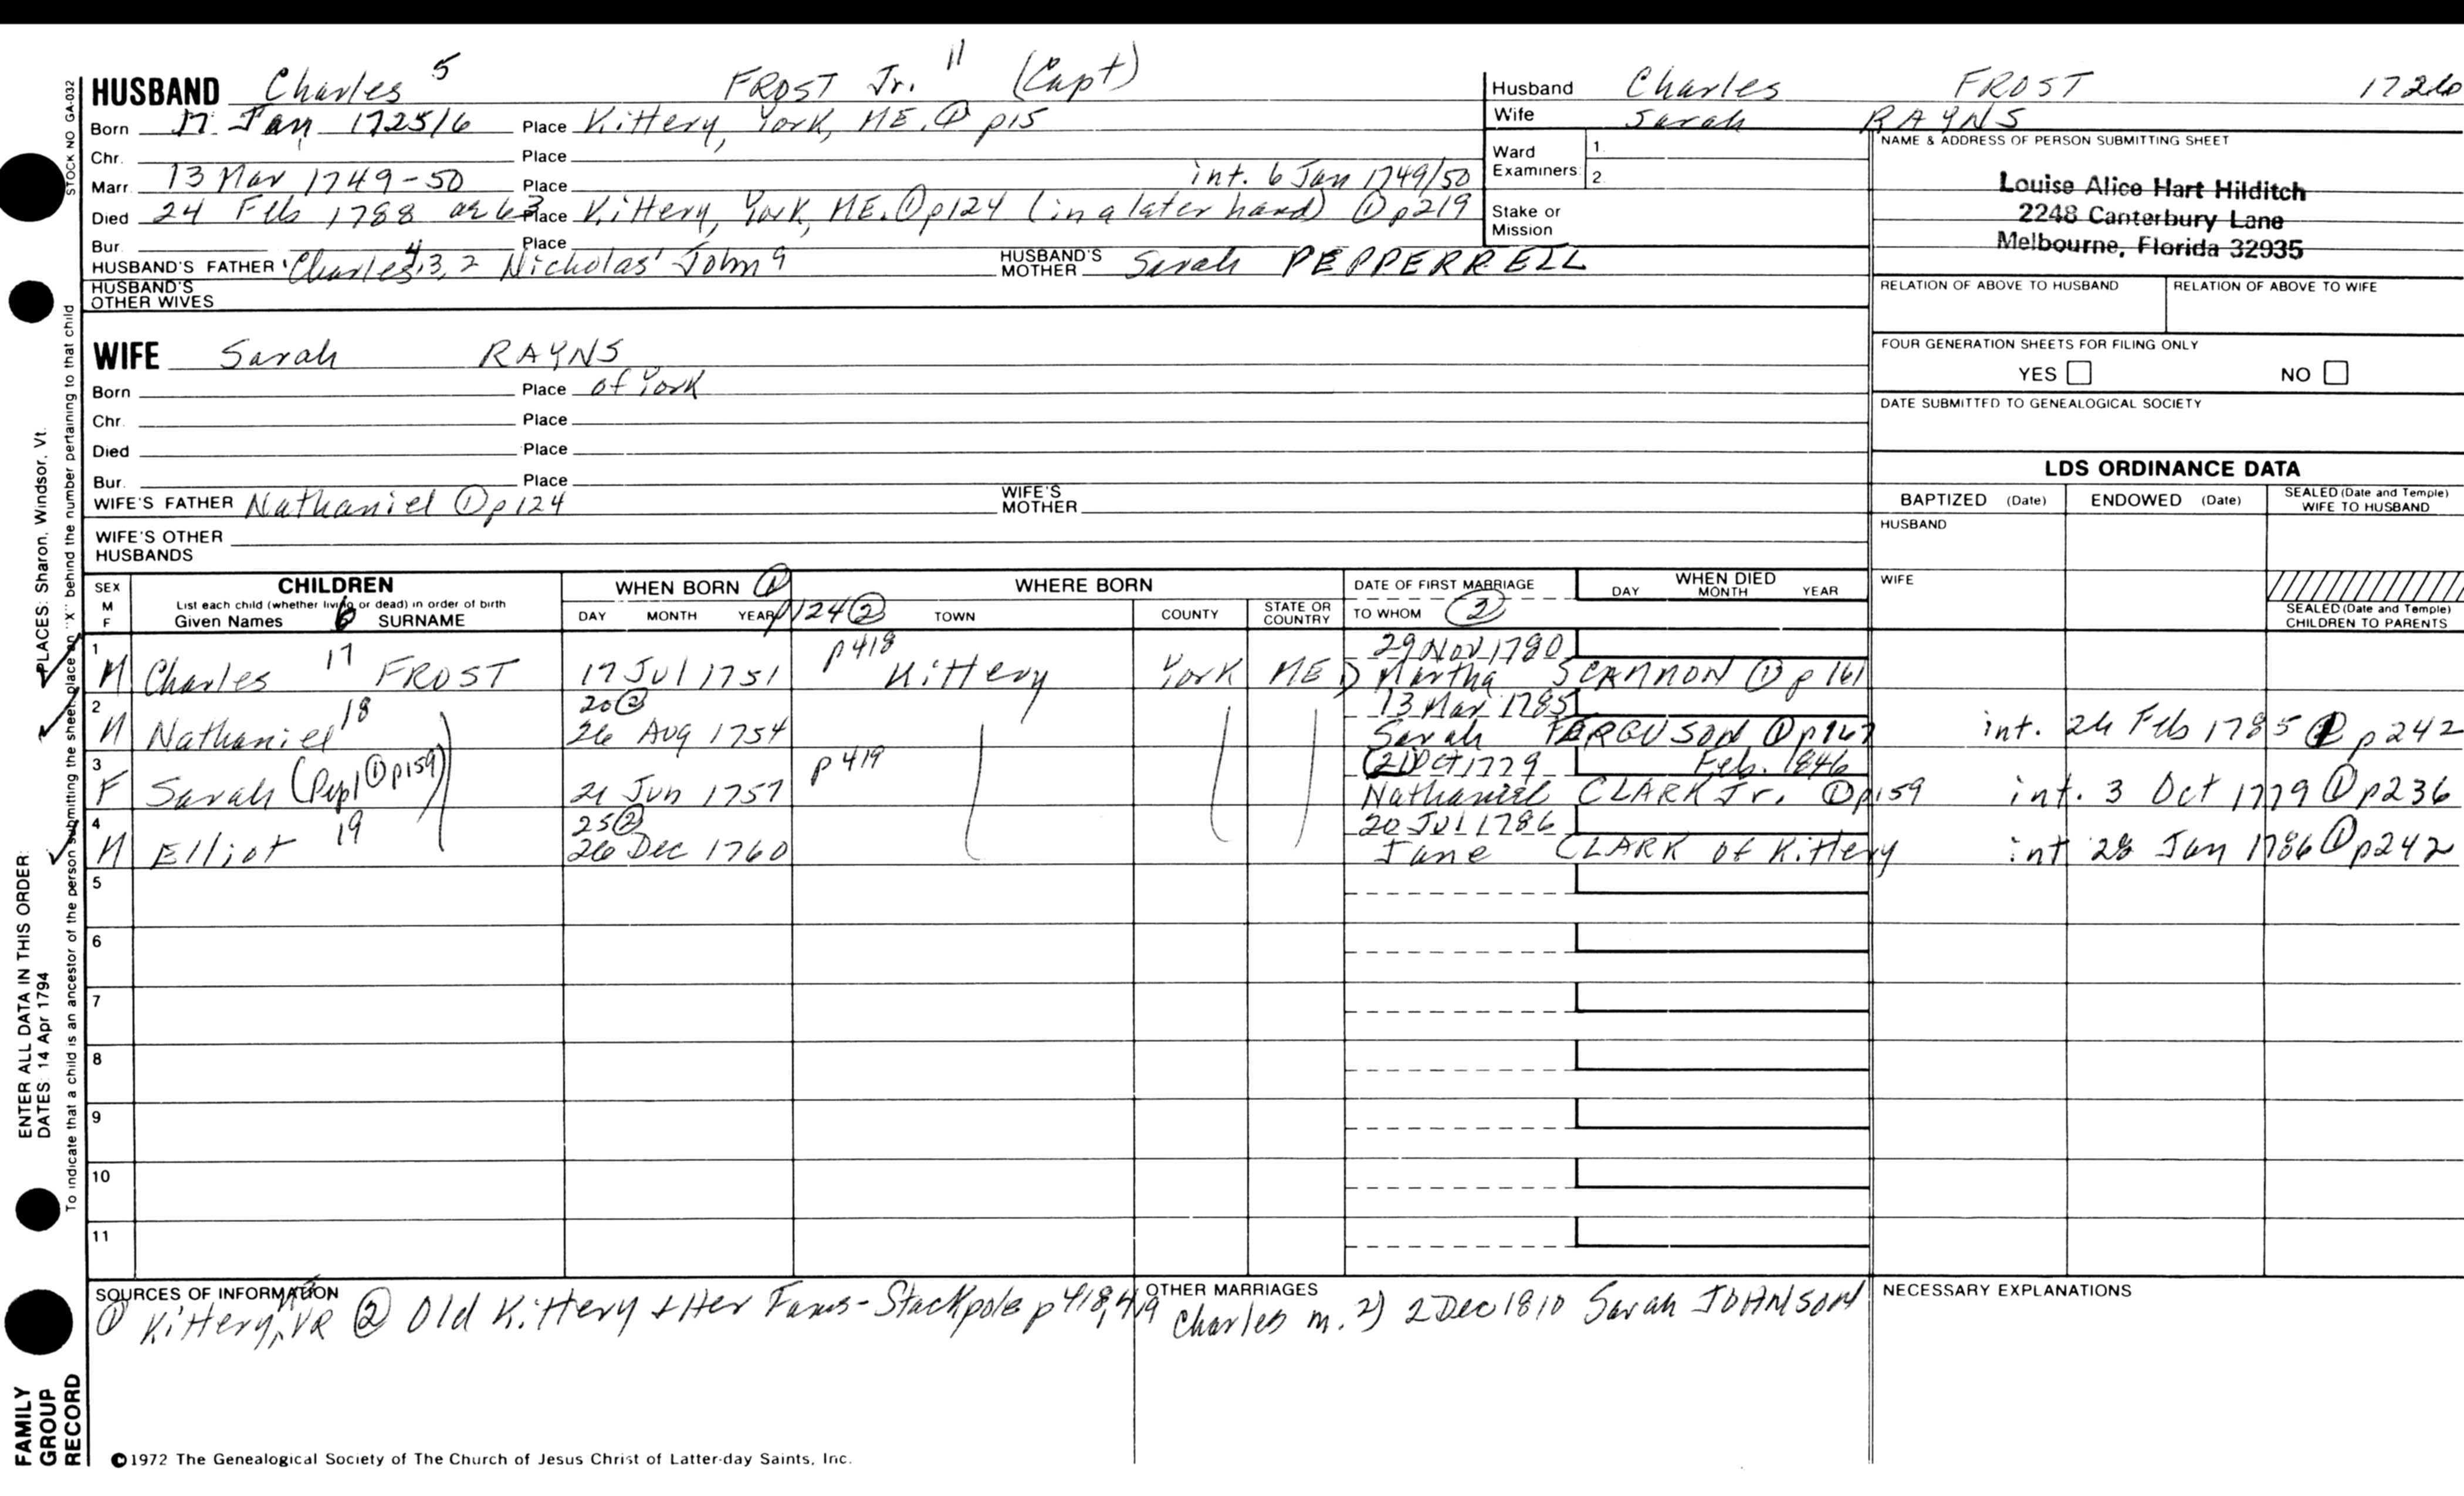 HUSBAND Charles 5 FROST Jr. 11 (Capt)
Born 17 Jan 1725/6 Place Kittery, York, ME. ① p15
Chr. Place
Marr. 13 Mar 1749-50 Place int. 6 Jan 1749/50
Died 24 Feb 1788 ae 63 Place Kittery, York, ME. ① p124 (in a later hand) ① p219
Bur. Place
HUSBAND'S FATHER Charles 4, 3, 2 Nicholas 1 John 9 HUSBAND'S MOTHER Sarah PEPPERRELL
HUSBAND'S OTHER WIVES
WIFE Sarah RAYNS
Born Place of York
Chr. Place
Died Place
Bur. Place
WIFE'S FATHER Nathaniel ① p124 WIFE'S MOTHER
WIFE'S OTHER HUSBANDS
Husband Charles FROST 1726
Wife Sarah RAYNS
Ward Examiners: 1. 2.
Stake or Mission
NAME & ADDRESS OF PERSON SUBMITTING SHEET
Louise Alice Hart Hilditch
2248 Canterbury Lane
Melbourne, Florida 32935
RELATION OF ABOVE TO HUSBAND RELATION OF ABOVE TO WIFE
FOUR GENERATION SHEETS FOR FILING ONLY
YES NO
DATE SUBMITTED TO GENEALOGICAL SOCIETY
LDS ORDINANCE DATA
BAPTIZED (Date) ENDOWED (Date) SEALED (Date and Temple) WIFE TO HUSBAND
HUSBAND
WIFE
SEALED (Date and Temple) CHILDREN TO PARENTS
SEX M F
CHILDREN
List each child (whether living or dead) in order of birth
Given Names 6 SURNAME
WHEN BORN ①
DAY MONTH YEAR p124 ②
WHERE BORN
TOWN COUNTY STATE OR COUNTRY
DATE OF FIRST MARRIAGE
TO WHOM ②
WHEN DIED
DAY MONTH YEAR
1 29 Nov 1780
M Charles 17 FROST 17 Jul 1751 p418 Kittery York ME 1) Martha SCAMMON ① p161
2 20 ② 13 Mar 1785
M Nathaniel 18 26 Aug 1754 Sarah FERGUSON ① p167 int. 26 Feb 1785 ① p242
3 p419 (21) Oct 1779 Feb. 1846
F Sarah (Pepl ① p159) 21 Jun 1757 Nathaniel CLARK Jr. ① p159 int. 3 Oct 1779 ① p236
4 25 ② 20 Jul 1786
M Elliot 19 26 Dec 1760 Jane CLARK of Kittery int 28 Jan 1786 ① p242
5
6
7
8
9
10
11
SOURCES OF INFORMATION
① Kittery, VR ② Old Kittery & Her Fams - Stackpole p418, 419
OTHER MARRIAGES
Charles m. 2) 2 Dec 1810 Sarah JOHNSON
NECESSARY EXPLANATIONS
©1972 The Genealogical Society of The Church of Jesus Christ of Latter-day Saints, Inc.
STOCK NO GA-032
To indicate that a child is an ancestor of the person submitting the sheet, place an "X" behind the number pertaining to that child
ENTER ALL DATA IN THIS ORDER:
DATES: 14 Apr 1794
PLACES: Sharon, Windsor, Vt.
FAMILY
GROUP
RECORD